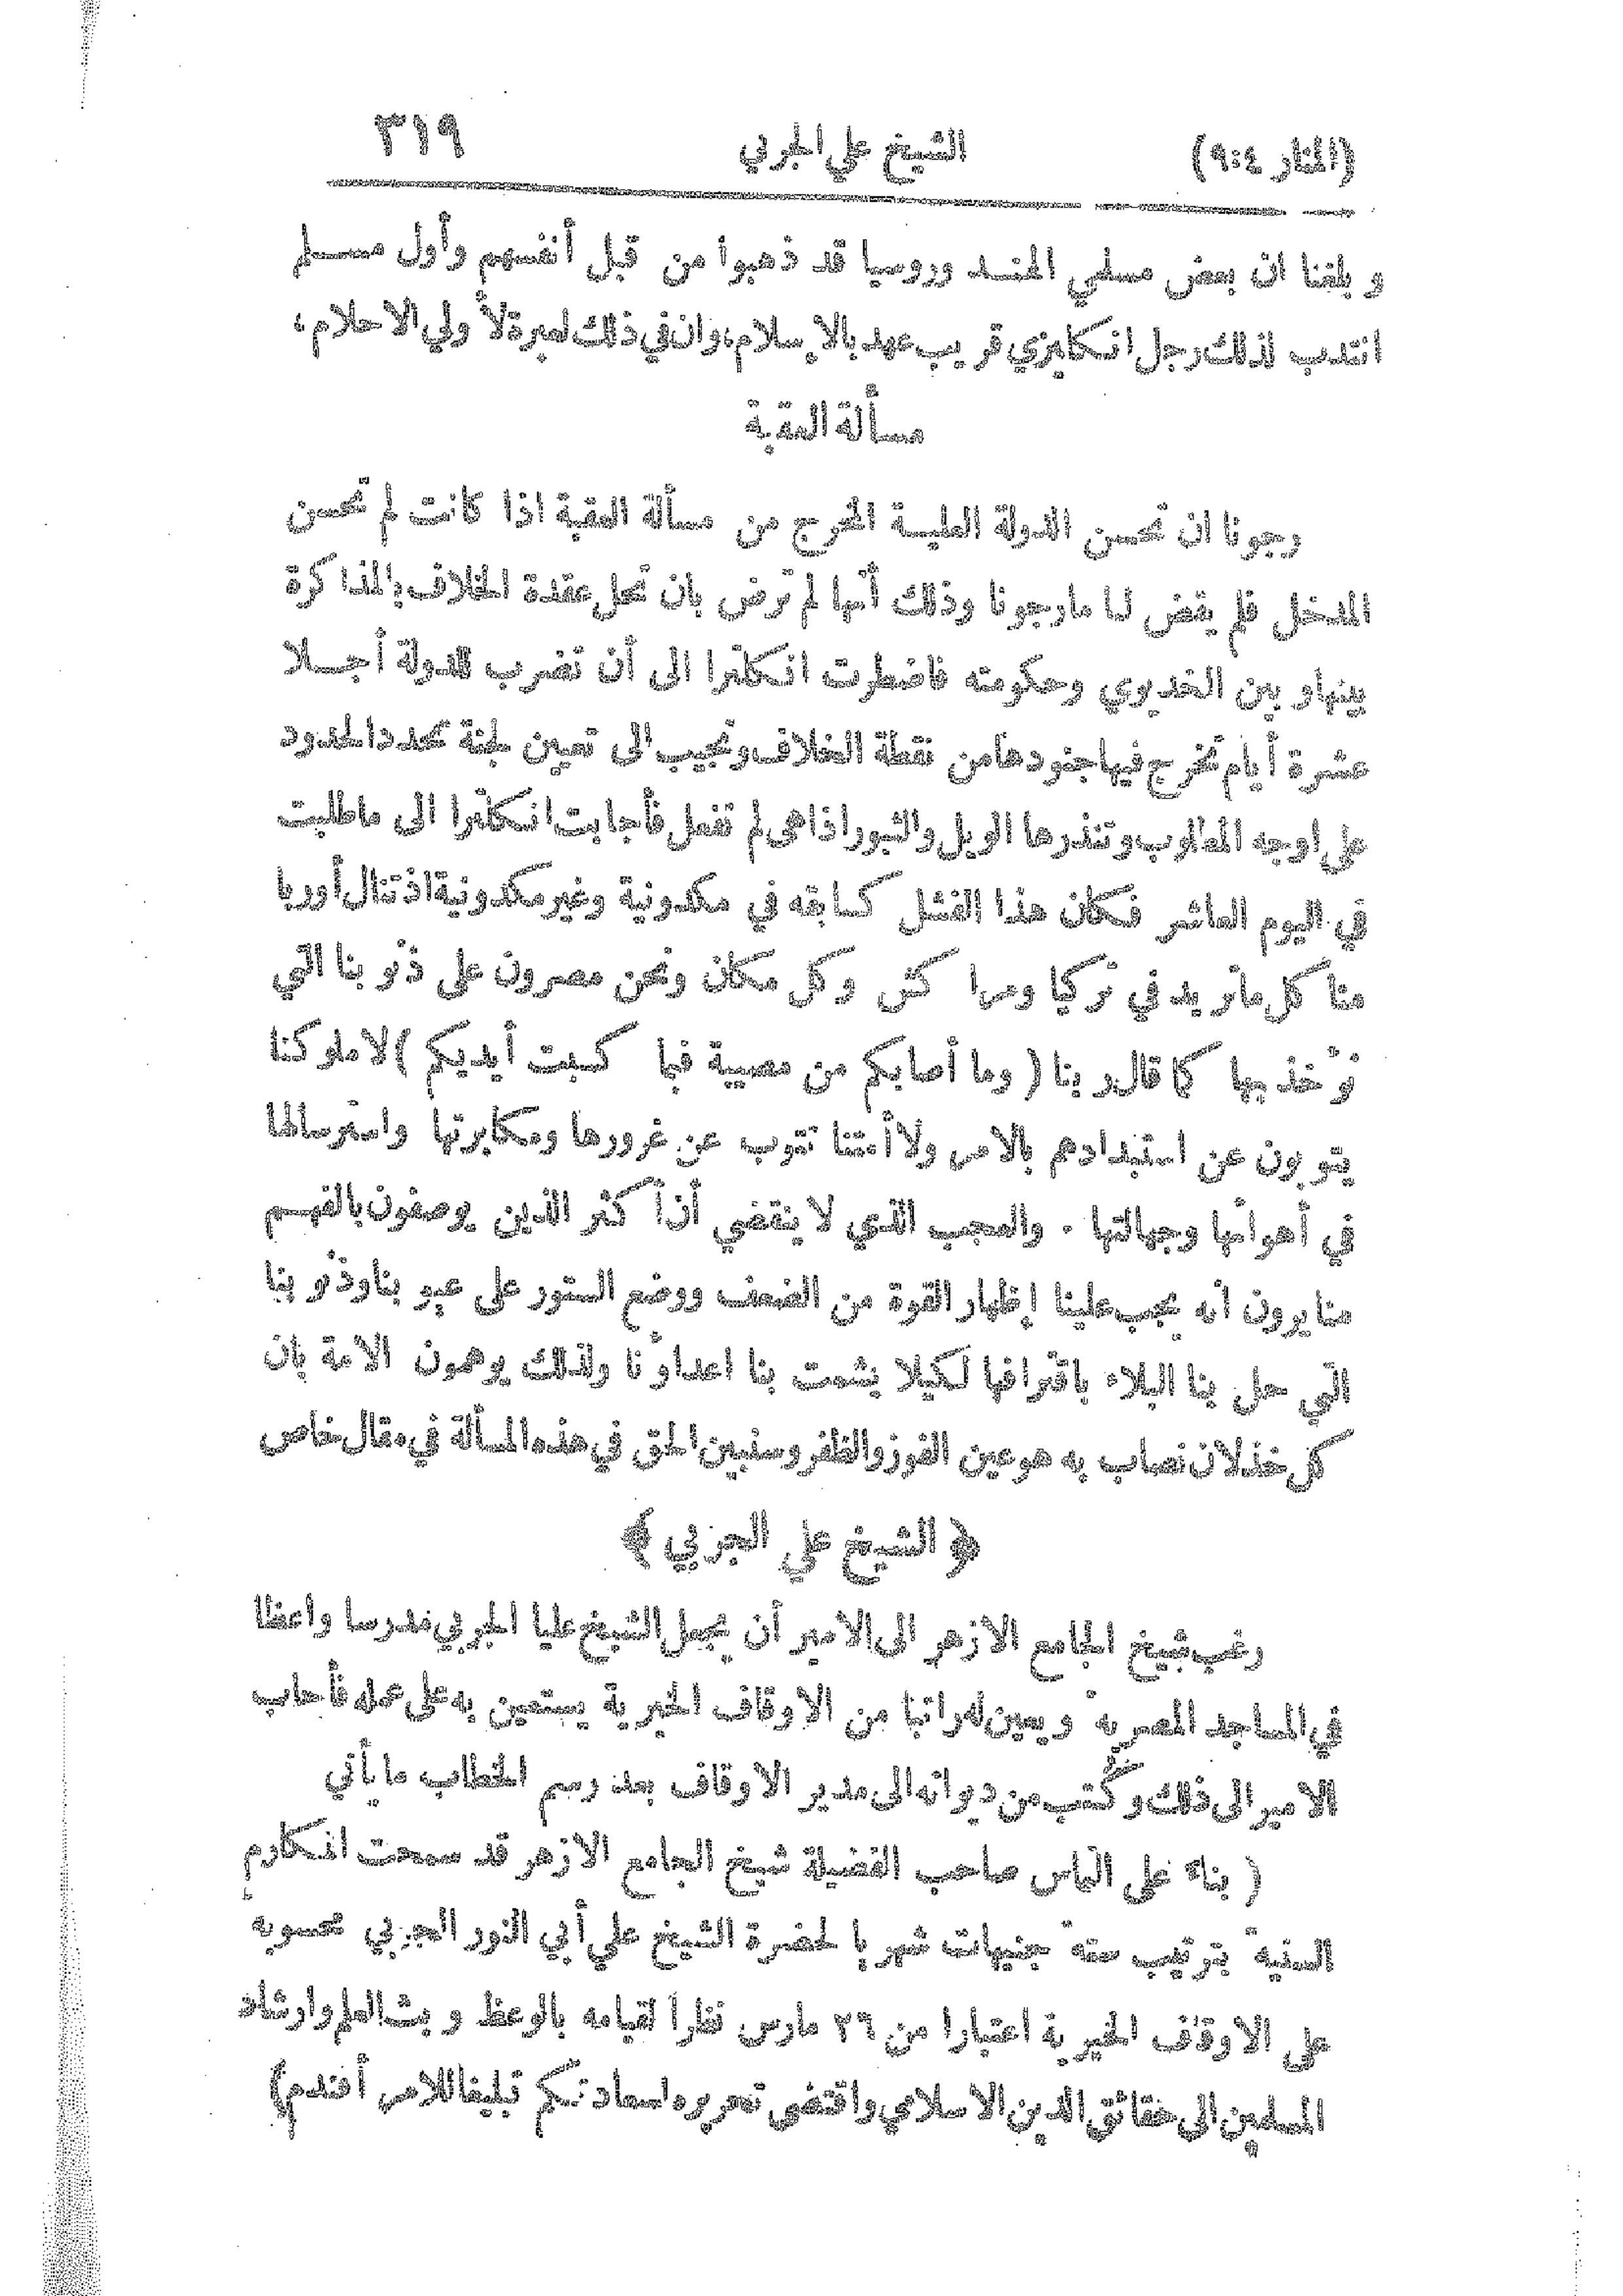 (المنار ٤:٩) الشيخ علي الجربي ٣١٩
و بلغنا ان بعض مسلمي الهند وروسيا قد ذهبوا من قبل أنفسهم وأول مسلم
انتدب لذلك رجل انكليزي قريب عهد بالإسلام، وان في ذلك لعبرة لأولي الاحلام،
مسألة العقبة
رجونا ان تحسن الدولة العلية المخرج من مسألة العقبة اذا كانت لم تحسن
المدخل فلم يقض لنا ما رجونا وذلك أنها لم ترض بان تحل عقدة الخلاف بالمذاكرة
بينها وبين الخديوي وحكومته فاضطرت انكلترا الى أن تضرب للدولة أجلا
عشرة أيام تخرج فيها جنودها من نقطة الخلاف وتجيب الى تعيين لجنة تحدد الحدود
على الوجه المطلوب وتنذرها الويل والثبور اذا هي لم تفعل فأجابت انكلترا الى ما طلبت
في اليوم العاشر فكان هذا الفشل كسابقه في مكدونية وغير مكدونية اذ تنال أوربا
منا كل ما تريد في تركيا ومراكش وكل مكان ونحن مصرون على ذنوبنا التي
نؤخذ بها كما قال ربنا (وما أصابكم من مصيبة فبما كسبت أيديكم) لا ملوكنا
يتوبون عن استبدادهم بالامر ولا أمتنا تتوب عن غرورها ومكابرتها واسترسالها
في أهوائها وجهالتها . والعجب الذي لا ينقضي أن أكثر الذين يوصفون بالفهم
منا يرون انه يجب علينا إظهار القوة من الضعف ووضع الستور على عيوبنا وذنوبنا
التي حل بنا البلاء باقترافها لكيلا يشمت بنا اعداؤنا ولذلك يوهمون الامة بان
كل خذلان نصاب به هو عين الفوز والظفر وسنبين الحق في هذه المسألة في مقال خاص
﴿ الشيخ علي الجربي ﴾
رغب شيخ الجامع الازهر الى الامير أن يجعل الشيخ عليا الجربي مدرسا واعظا
في المساجد المصرية ويعين له راتبا من الاوقاف الخيرية يستعين به على عمله فأجاب
الامير الى ذلك وكُتب من ديوانه الى مدير الاوقاف بعد رسم الخطاب ما يأتي
( بناء على التماس صاحب الفضيلة شيخ الجامع الازهر قد سمحت المكارم
السنية بترتيب ستة جنيهات شهريا لحضرة الشيخ علي أبي النور الجربي محسوبة
على الاوقاف الخيرية اعتبارا من ٢٦ مارس نظراً لقيامه بالوعظ وبث العلم وارشاد
المسلمين الى حقائق الدين الاسلامي واقتضى تحريره لسعادتكم تبليغا للامر أفندم)